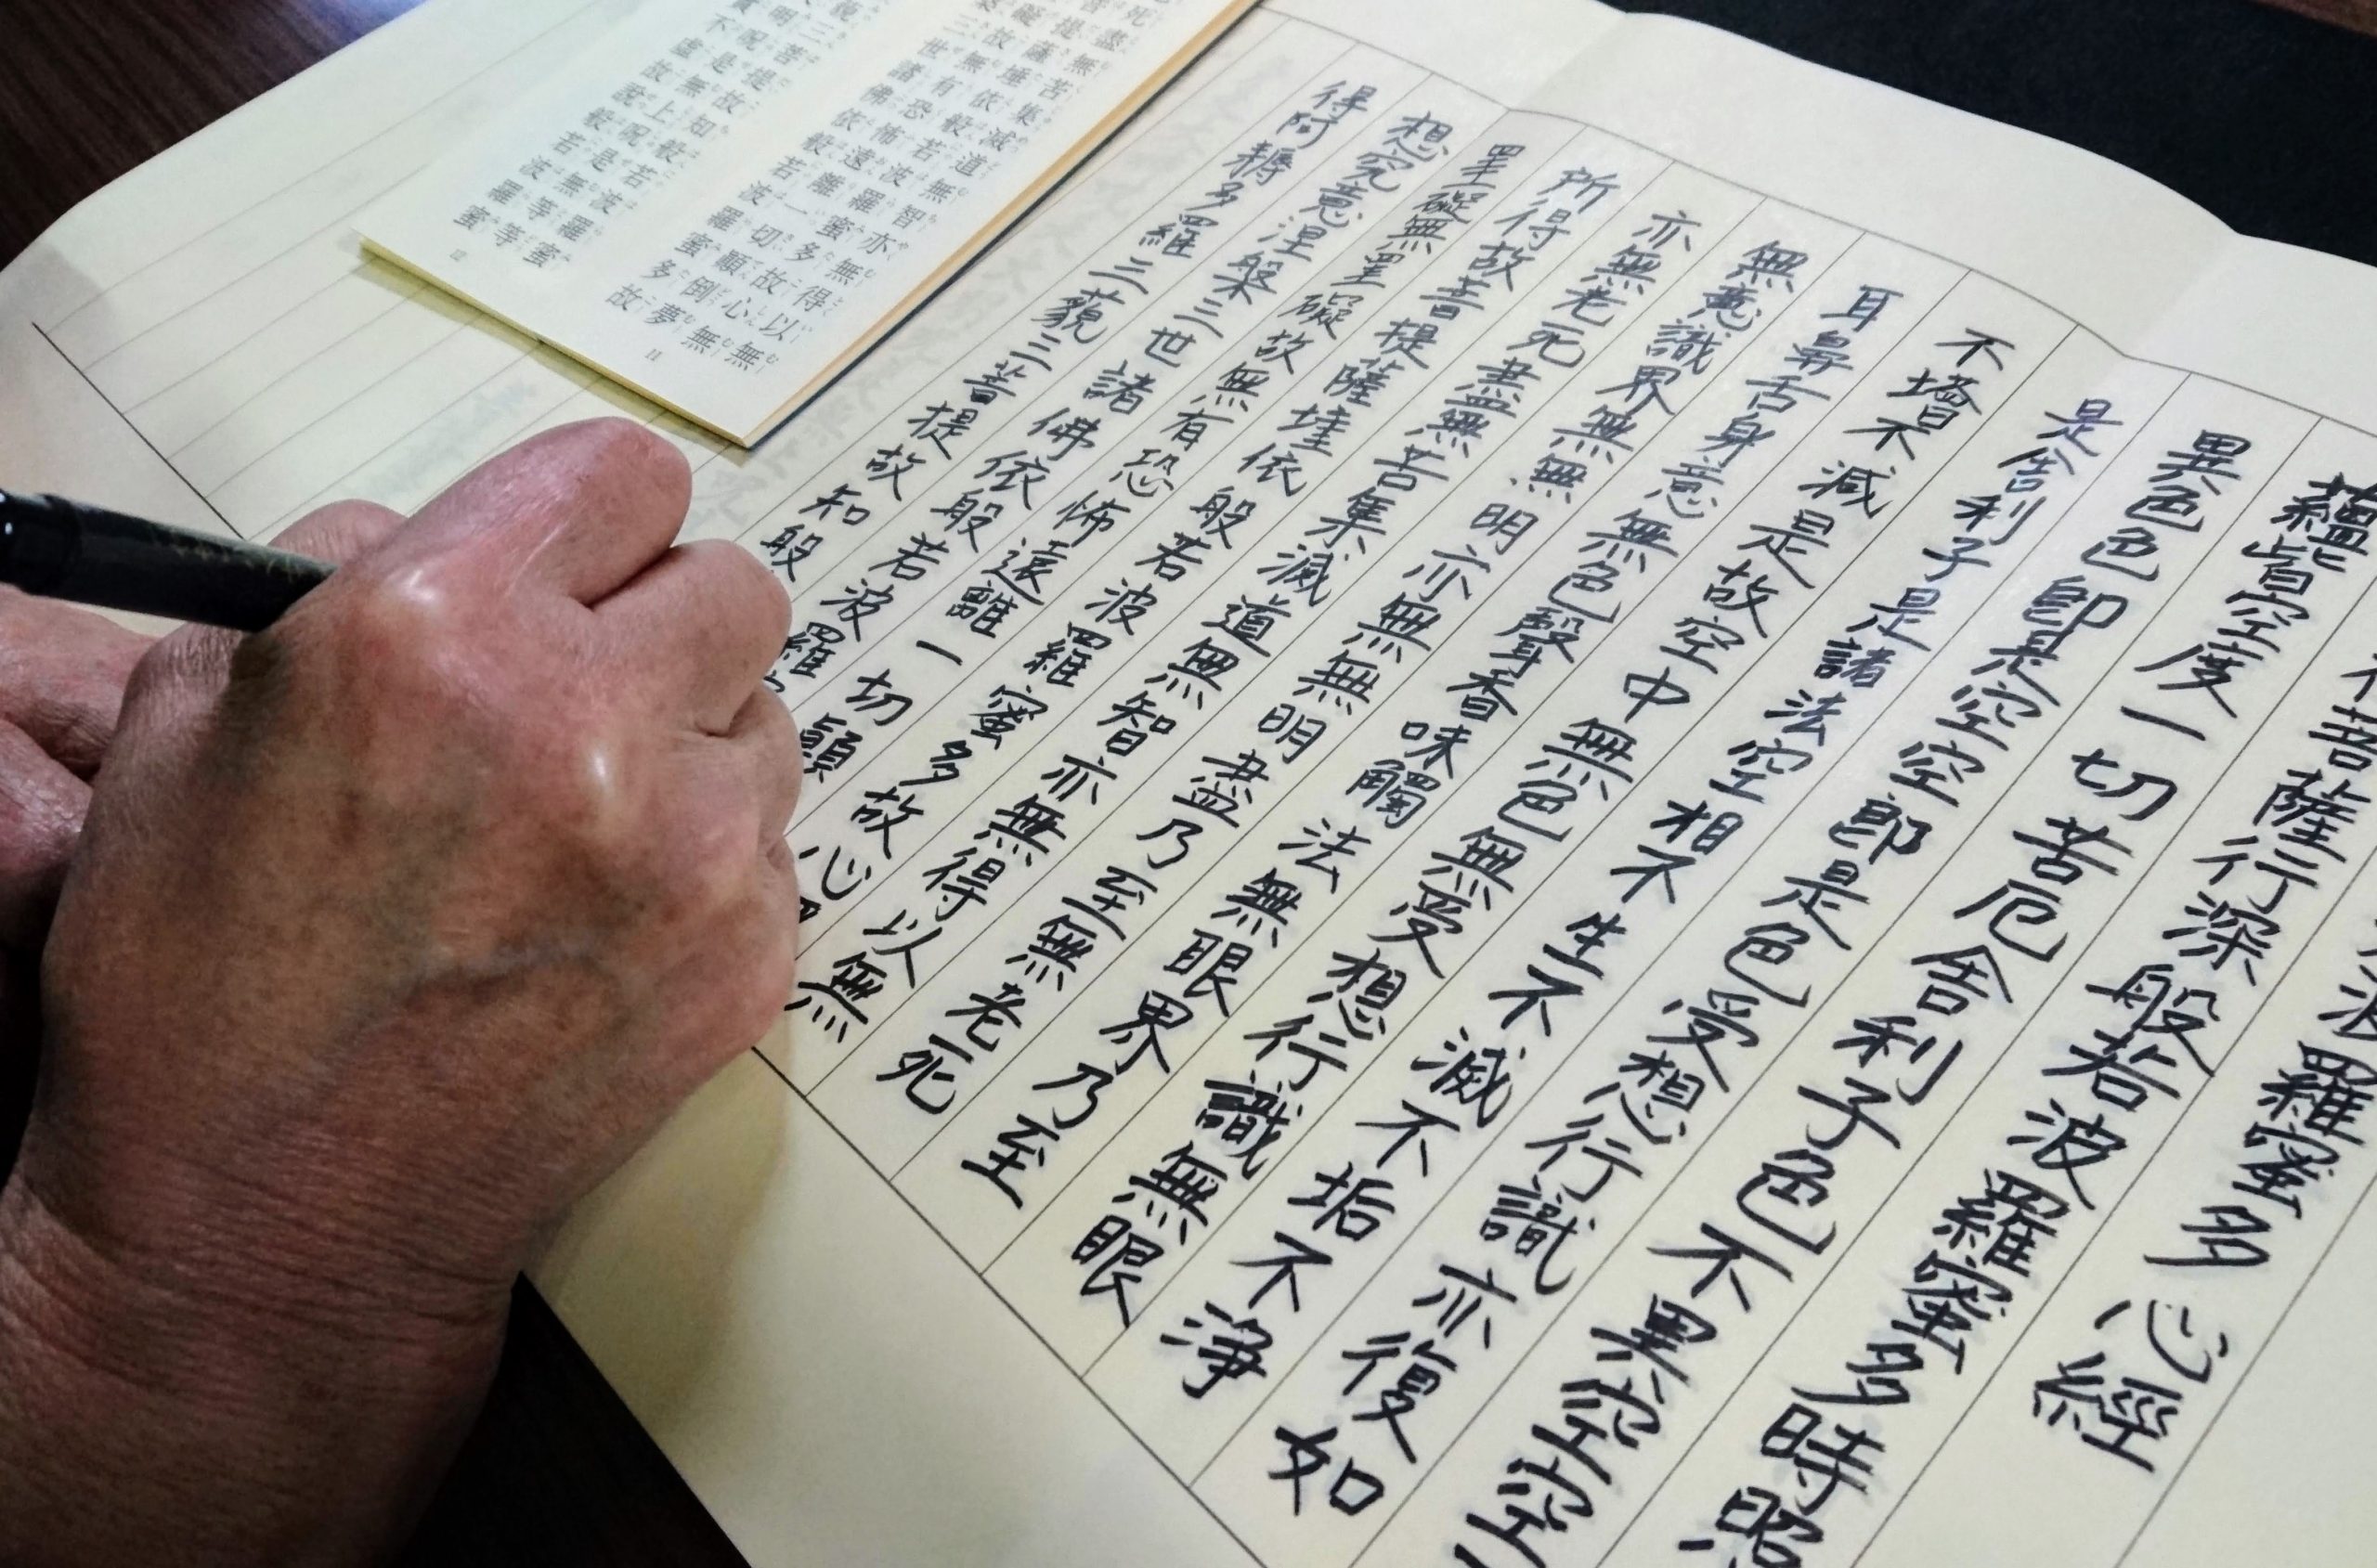 波羅蜜多心經
菩薩行深般若波羅蜜多時照
蘊皆空度一切苦厄舍利子色不異空空
異色色即是空空即是色受想行識亦復如
是舍利子是諸法空相不生不滅不垢不淨
不增不減是故空中無色無受想行識無眼
耳鼻舌身意無色聲香味觸法無眼界乃至
無意識界無無明亦無無明盡乃至無老死
亦無老死盡無苦集滅道無智亦無得以無
所得故菩提薩埵依般若波羅蜜多故心
罣礙無罣礙故無有恐怖遠離一切顛
想究意涅槃三世諸佛依般若波羅
得阿耨多羅三藐三菩提故知般
死盡無苦集滅道無智亦無得以無
菩提薩埵依般若波羅蜜多故心無
礙故無有恐怖遠離一切顛倒夢
三世諸佛依般若波羅蜜多故
11
三菩提故知般若波羅蜜
明咒是無上咒是無等等
不虛故說般若波羅蜜
12